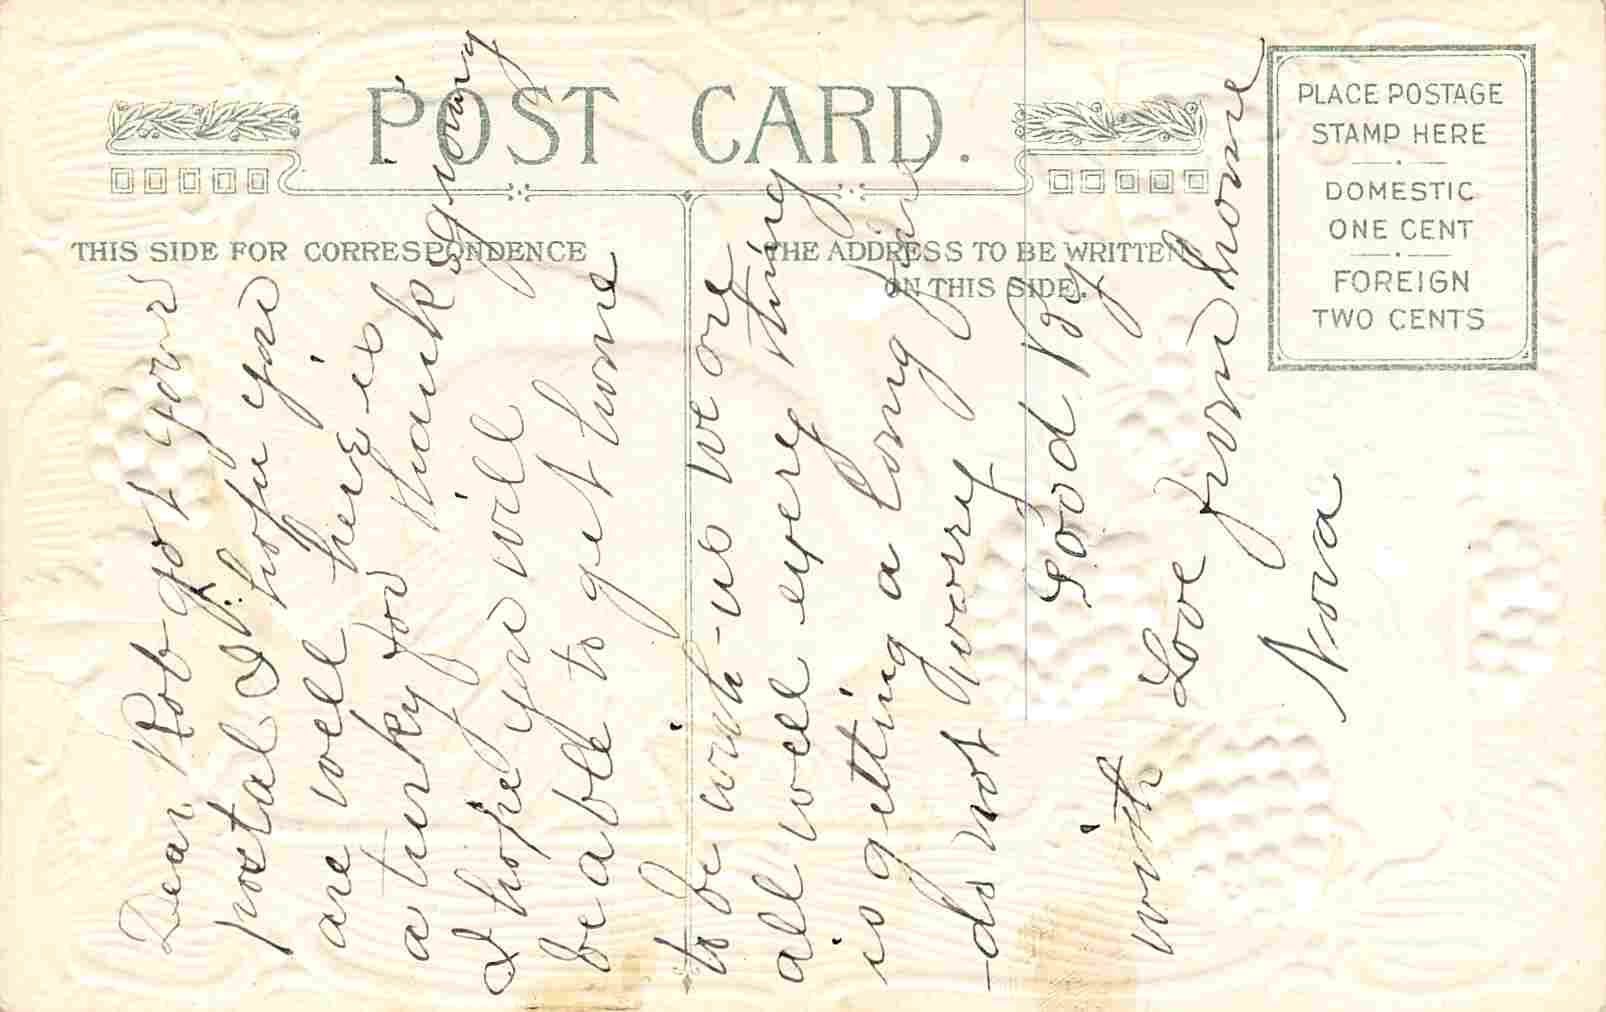 POST CARD.
THIS SIDE FOR CORRESPONDENCE
THE ADDRESS TO BE WRITTEN
ON THIS SIDE.
PLACE POSTAGE
STAMP HERE
DOMESTIC
ONE CENT
FOREIGN
TWO CENTS
Dear Rob got your
postal I hope you
are well here is
a turky for thanksgiving
I hope you will
be able to get home
to be with us we are
all well every thing
is getting a long fine
do not worry
Good Boy
with Love from home
Nora